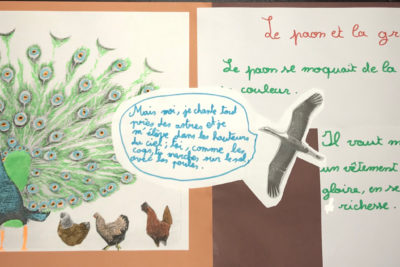 Le paon et la gr
Le paon se moquait de la
couleur.
Mais moi, je chante tout
près des astres et je
m'élève dans les hauteurs
du ciel; toi, comme les
coqs, tu marches sur le sol,
avec les poules.
Il vaut m
un vêtement
gloire, en se
richesse.